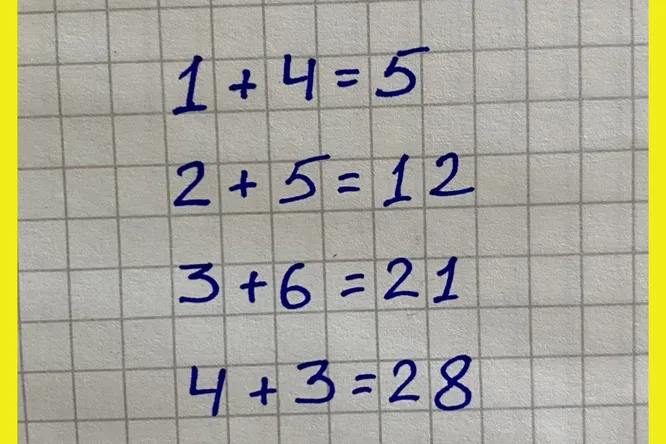 1 + 4 = 5
2 + 5 = 12
3 + 6 = 21
4 + 3 = 28